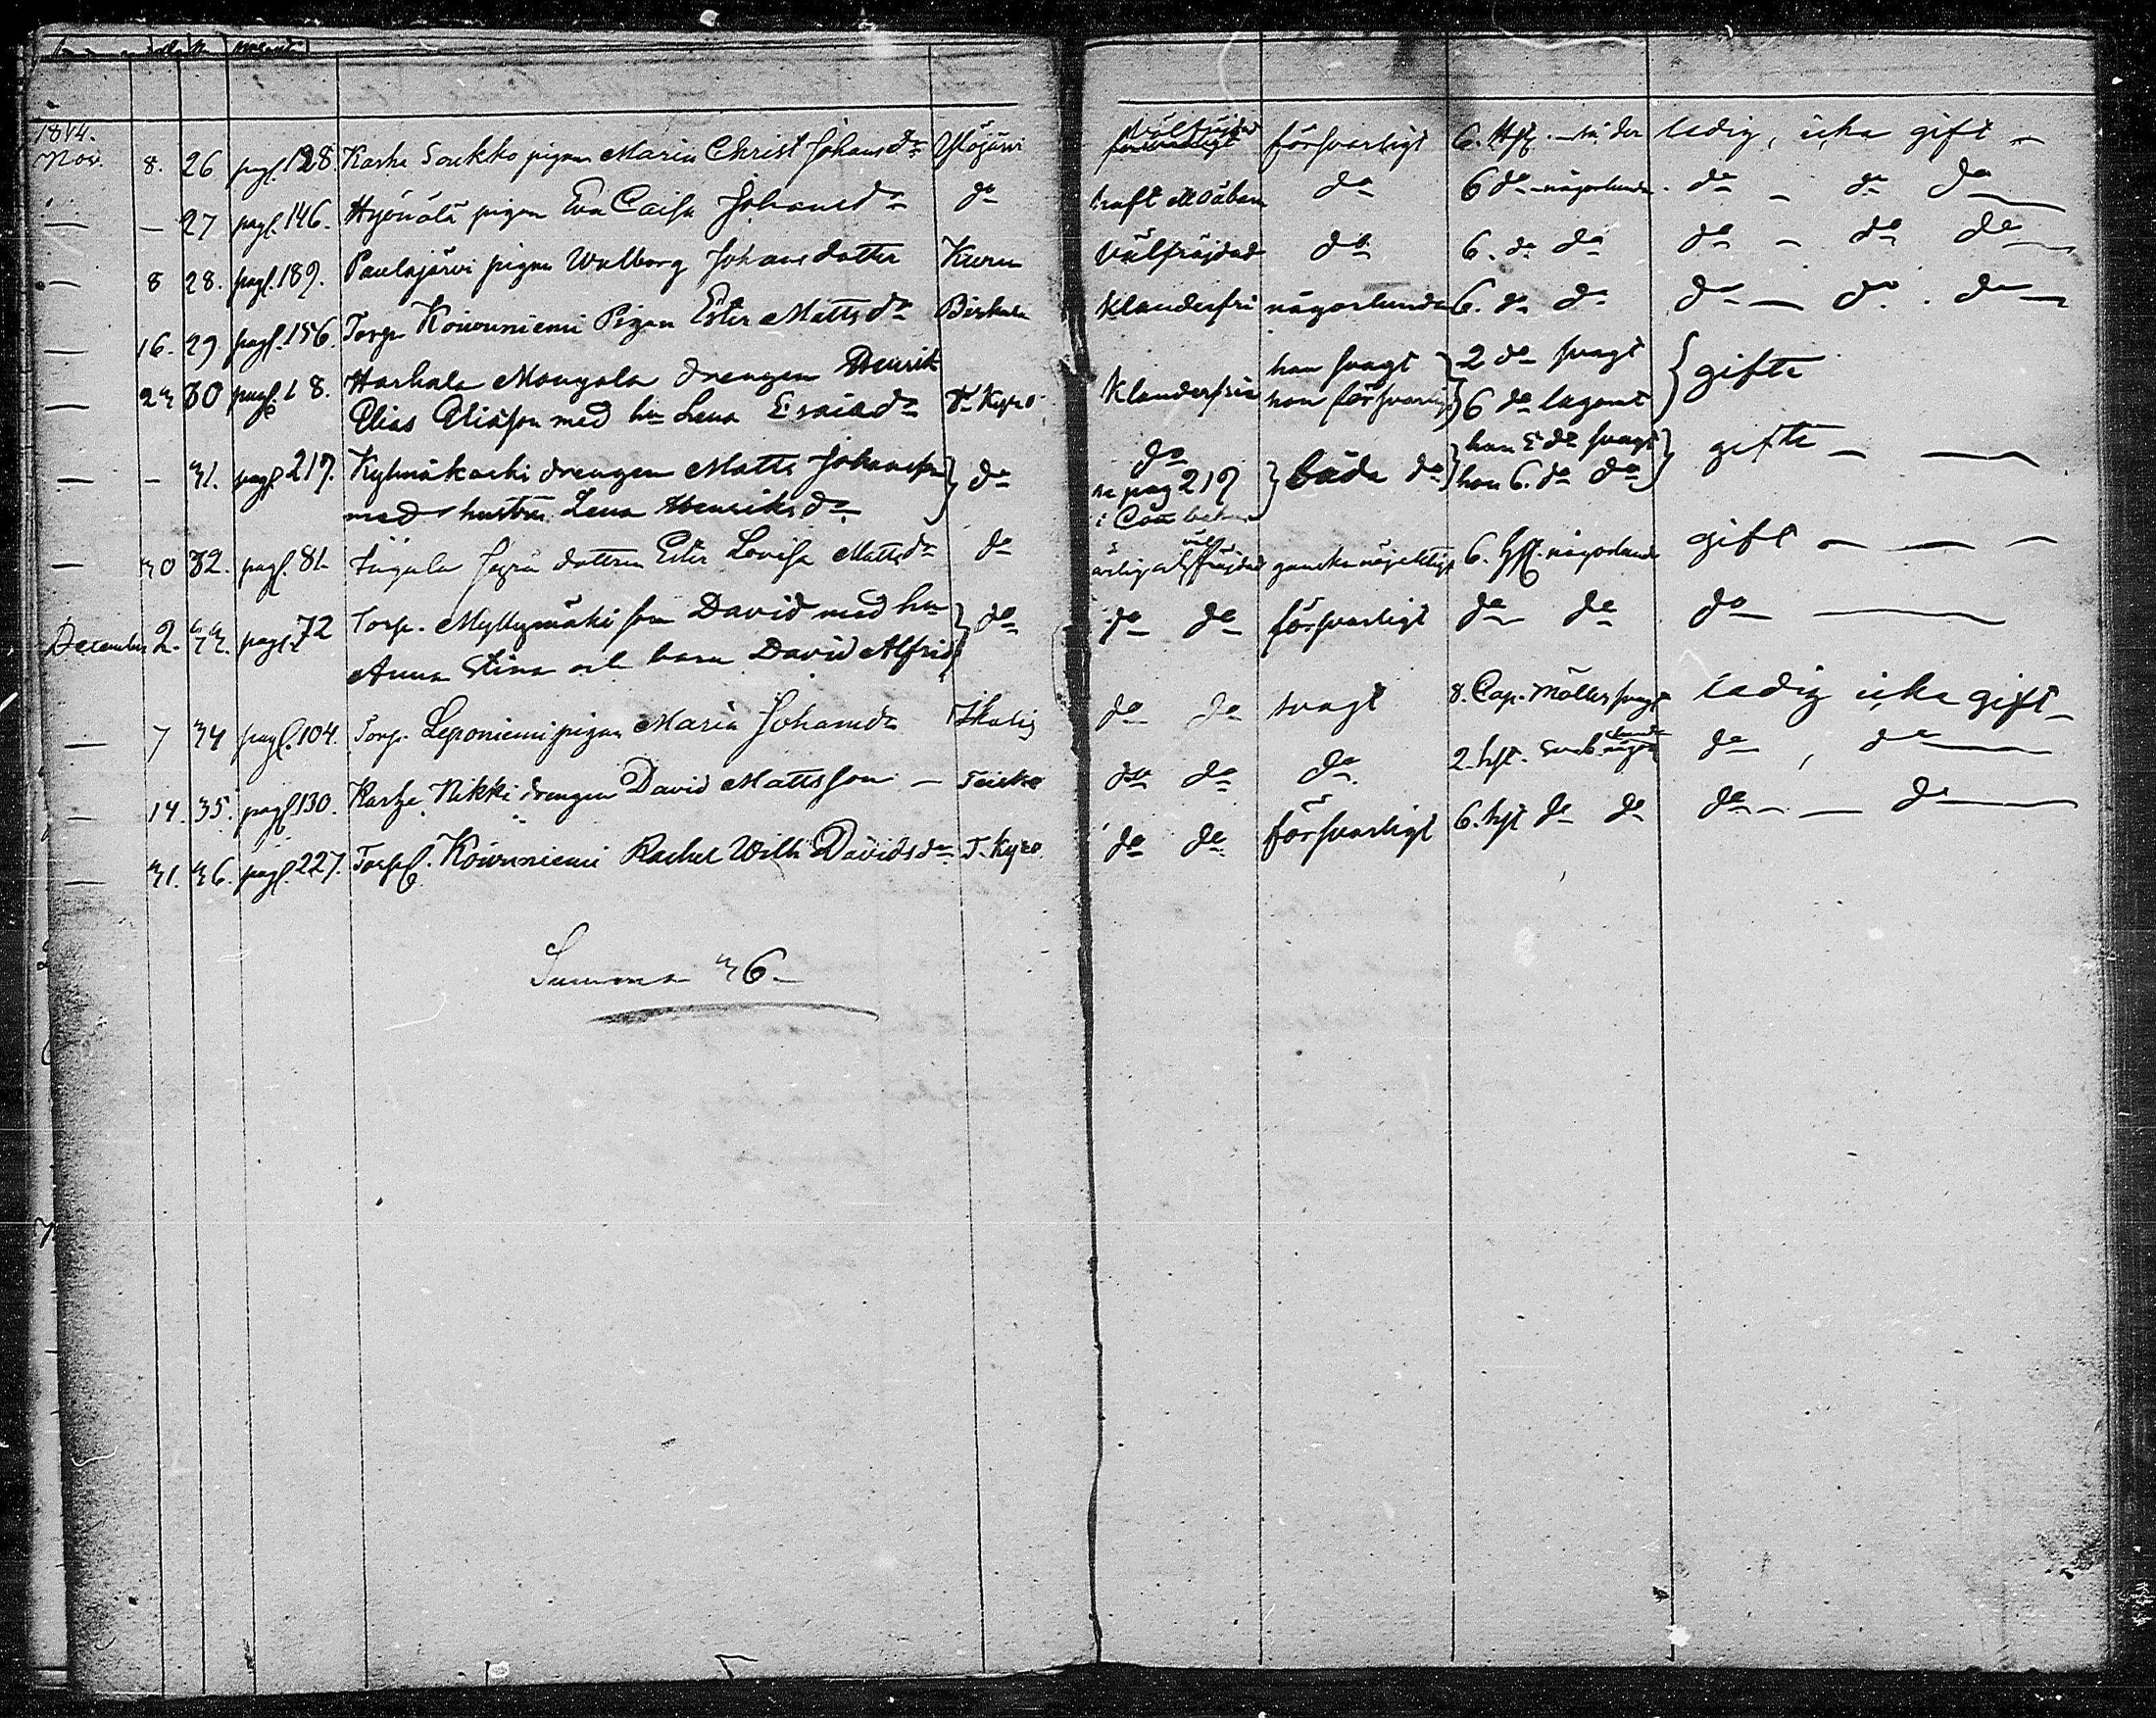 1844.
Nov. 8. 26 pag. 128. Karhe Soukko pigan Maria Christ Johansdr Ylöjärvi välfräjdad försvarligt 6. Hft. ledig, icke gift —
— — 27 pag. 146. Hyönölä pigan Eva Caisa Johansdr do haft do 6 do någorlunda do — do do
— 8 28. pag. 189. Paulajärvi pigan Walborg Johansdotter Kuru välfräjdad do 6. do do do — do do
— 16. 29 pag. 156. Torp. Koivuniemi Pigan Ester Mattsdr Birkala klanderfri någorlunda 6. do do do — do. do
— 23 30 pag. 18. Harhala Mongola drengen Henrik
Elias Eliasson med hu Lena Esaiædr T. Kyro klanderfria han svagt hon försvarligt } 2 do svagt 6 do lagomt } gifte
— — 31. pag. 217. Kylmäkoski drengen Matts Johansson
med hustru Lena Henriksdr } do do
se pag 217 } båda do } han 5 do svagt
hon 6. do do } gifte — —
— 30 32. pag. 81. dottren Ester Lovisa Mattsdr do ärlig välfräjdad ganska nöjaktigt 6. Hft. någorlunda gift — — —
December 2. 33. pag. 72 Torp. Myllymäki son David med hu
Anna Stina och barn David Alfrid } do do do försvarligt do do do —
— 7 34 pag. 104. Torp. Leponiemi pigan Maria Johansdr Ikalis do do svagt 8. Cap. Möller svagt ledig icke gift —
— 14. 35. pag. 130. Karhe Nikki drengen David Mattsson — Teisko do do do. 2. hft. do, do
— 31. 36. pag. 227. Torp. Koivuniemi Rachel Wilh Davidsdr T. Kyro do do försvarligt 6. hft do do do — — do
Summa 36 —